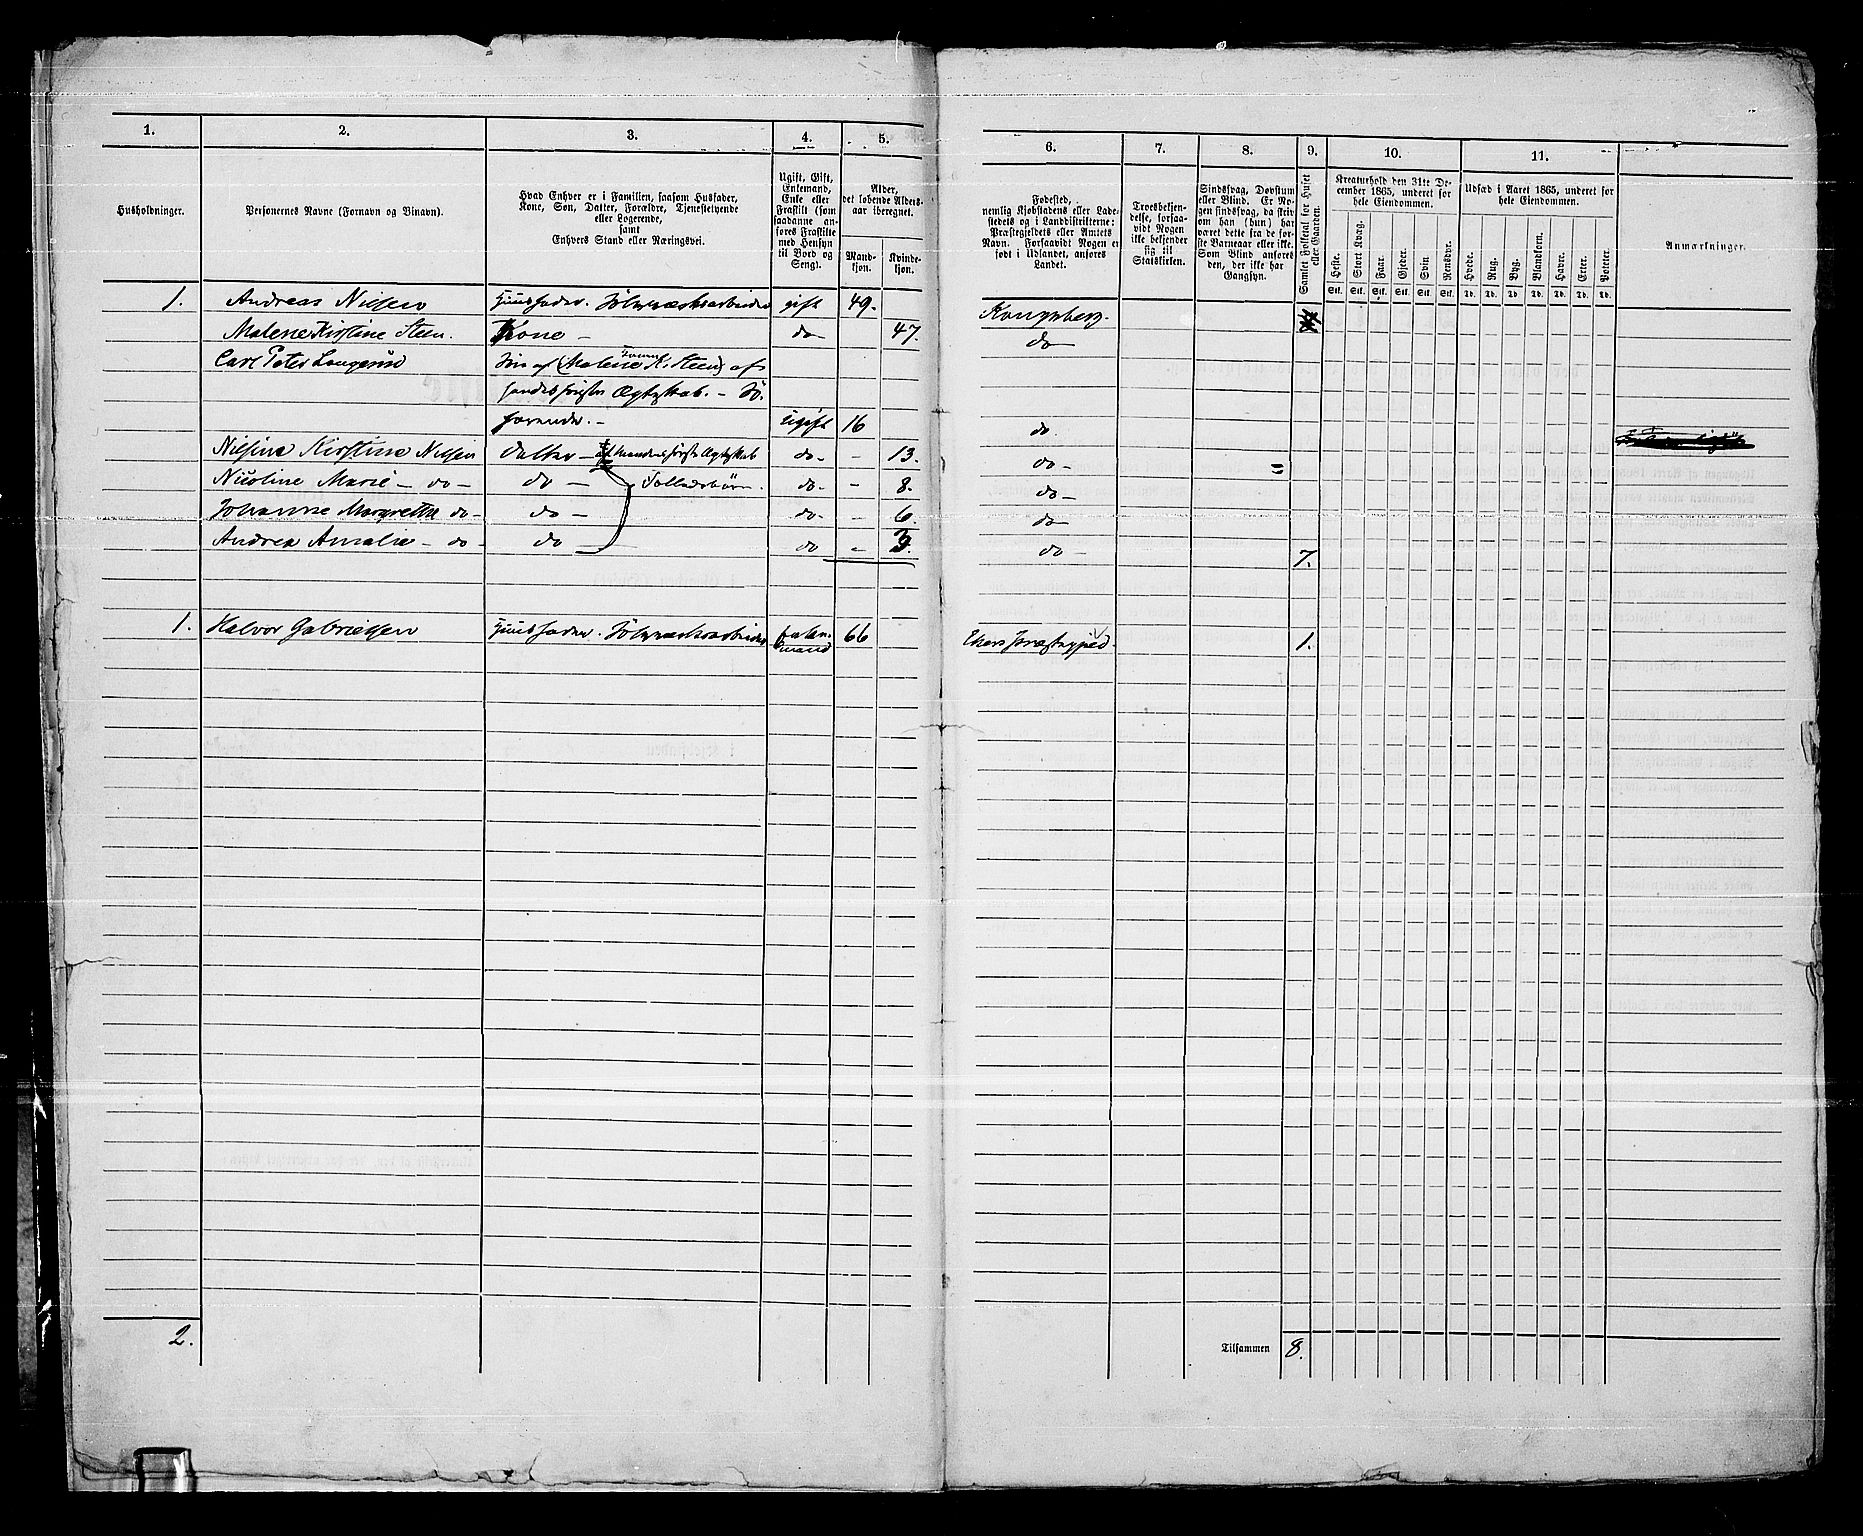 1.
2.
3.
4.
5.
Husholdninger.
Personernes Navne (Fornavn og Binavn).
Hvad Enhver er i Familien, saasom Husfader,
Kone, Søn, Datter, Forældre, Tjenestetyende
eller Logerende,
samt
Enhvers Stand eller Næringsvei.
Ugift, Gift,
Enkemand,
Enke eller
Fraskilt (som
saadanne an-
føres Fraskilte
med Hensyn
til Bord og
Seng).
Alder,
det løbende Alders-
aar iberegnet.
Mand-
kjøn.
Kvinde-
kjøn.
1. Andreas Nilsen Huusfader. Sølvværksarbeider gift 49.
Malene Kirstine Steen. Kone – do 47.
Carl Peter Søn af (Malene K. Steen) af
hendes første Ægteskab. –
ugift 16
Nilsine Kirstine Nilsen Datter – af Mandens første Ægteskab do – 13.
Nicoline Marie – do – do – Fællesbørn. do – 8.
Johanne Margrethe do – do – do – 6.
Andrea Amalie – do – do – do – 3.
1. Halvor Gabrielsen Huusfader. Sølvværksarbeider Enke-
mand 66
2.
6.
7.
8.
9.
10.
11.
Fødested,
nemlig Kjøbstadens eller Lade-
stedets og i Landdistrikterne:
Præstegjeldets eller Amtets
Navn. Forsaavidt Nogen er
født i Udlandet, anføres
Landet.
Troesbekjen-
delse, forsaa-
vidt Nogen
ikke bekjender
sig til
Statskirken.
Sindssvag, Døvstum
eller Blind. Er No-
gen sindssvag, da skriv
om han (hun) har
været dette fra de før-
ste Barneaar eller ikke.
Som Blind anføres
den, der ikke har
Gangsyn.
Samlet Folketal for Huset
eller Gaarden.
Kreaturhold den 31te De-
cember 1865, underet for
hele Eiendommen.
Heste.
Stort Kvæg.
Faar.
Gjeder.
Svin.
Rensdyr.
Stk. Stk. Stk. Stk. Stk. Stk.
Udsæd i Aaret 1865, underet for
hele Eiendommen.
Hvede.
Rug.
Byg.
Blandkorn.
Havre.
Erter.
Poteter.
Td. Td. Td. Td. Td. Td. Td.
Anmærkninger.
Kongsberg.
do
do.
do –
do –
do –
do – 7.
Ekers Præstegjeld. 1.
Tilsammen 8.